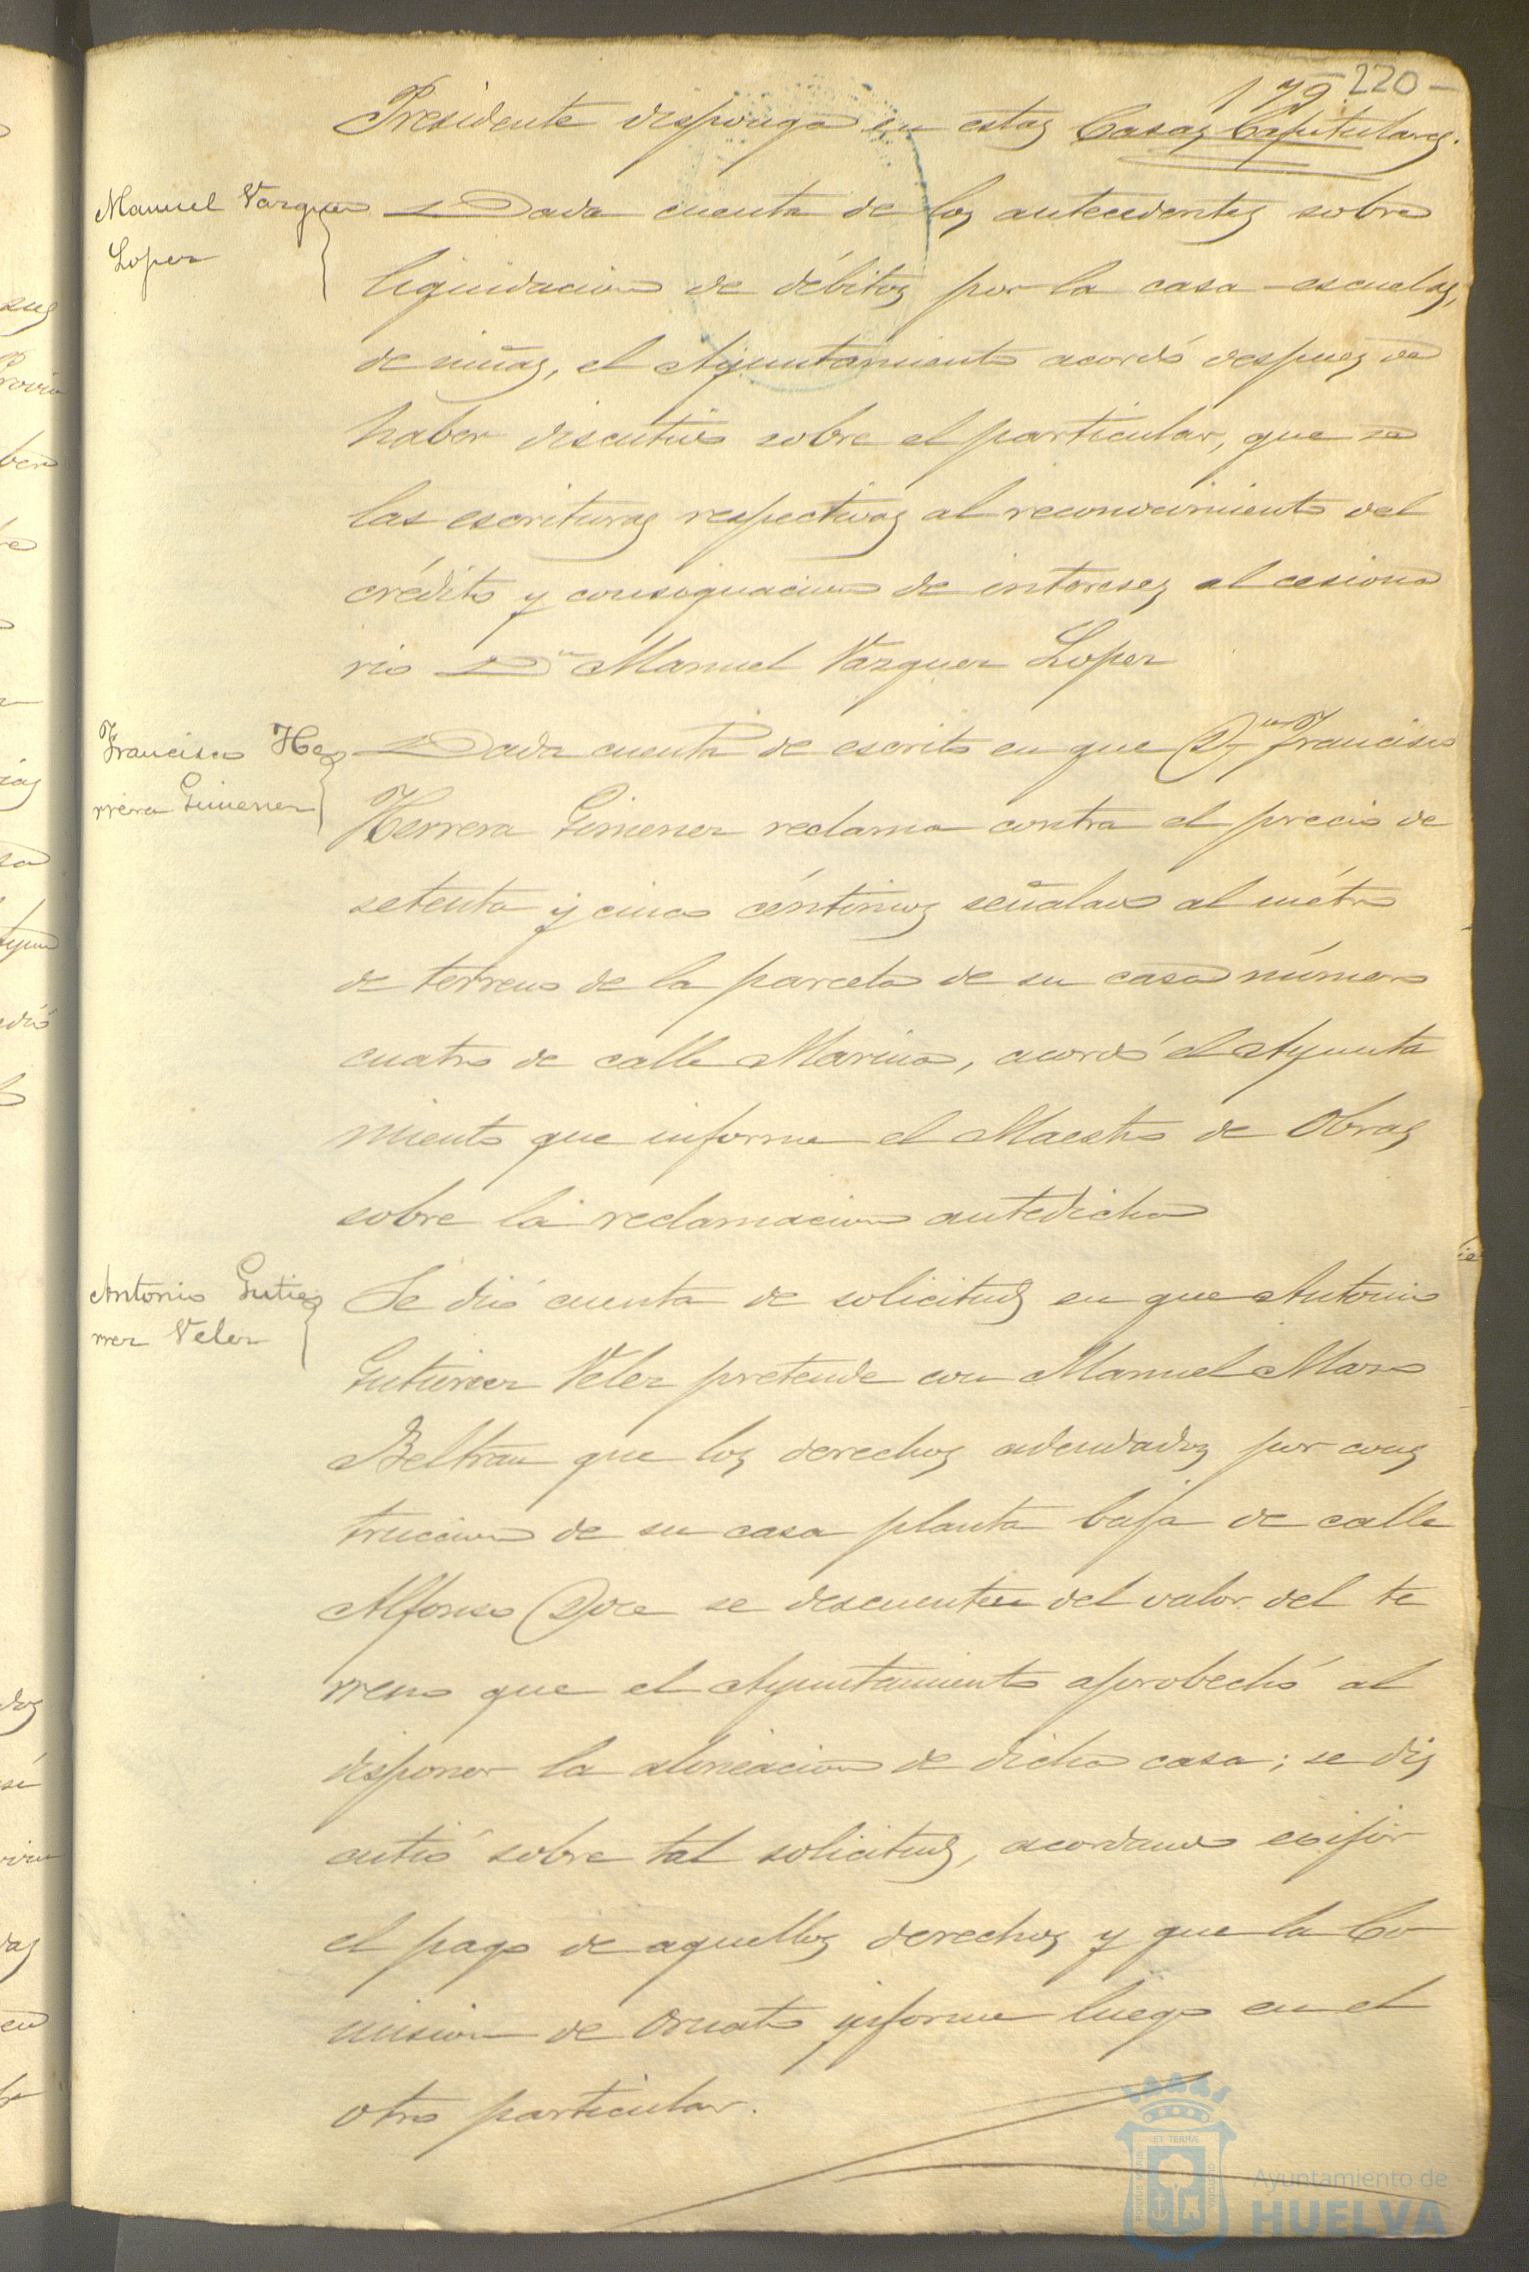 179. 220
Presidente disponga en estas Casas Capitulares.
Manuel Vazquez
Lopez
Dada cuenta de los antecedentes sobre
liquidacion de débitos por la casa-escuelas,
de niñas, el Ayuntamiento acordó despues de
haber discutido sobre el particular, que se
las escrituras respectivas al reconocimiento del
crédito y consignacion de intereses al cesiona
rio Dn Manuel Vazquez Lopez
Francisco He
rrera Gimenez
Dada cuenta de escrito en que Dn Francisco
Herrera Gimenez reclama contra el precio de
setenta y cinco céntimos señalado al métro
de terreno de la parcela de su casa número
cuatro de calle Marina, acordó el Ayunta
miento que informe el Maestro de Obras
sobre la reclamacion antedicha
Antonio Gutie
rrez Velez
Se dió cuenta de solicitud en que Antonio
Gutierrez Velez pretende con Manuel Maro
Beltran que los derechos adeudados por cons
truccion de su casa planta baja de calle
Alfonso Doce se descuenten del valor del te
rreno que el Ayuntamiento aprobechó al
disponer la alineacion de dicha casa; se dis
cutió sobre tal solicitud, acordando exijir
el pago de aquellos derechos y que la Co-
mision de Ornato informe luego en el
otro particular.
Ayuntamiento de
HUELVA